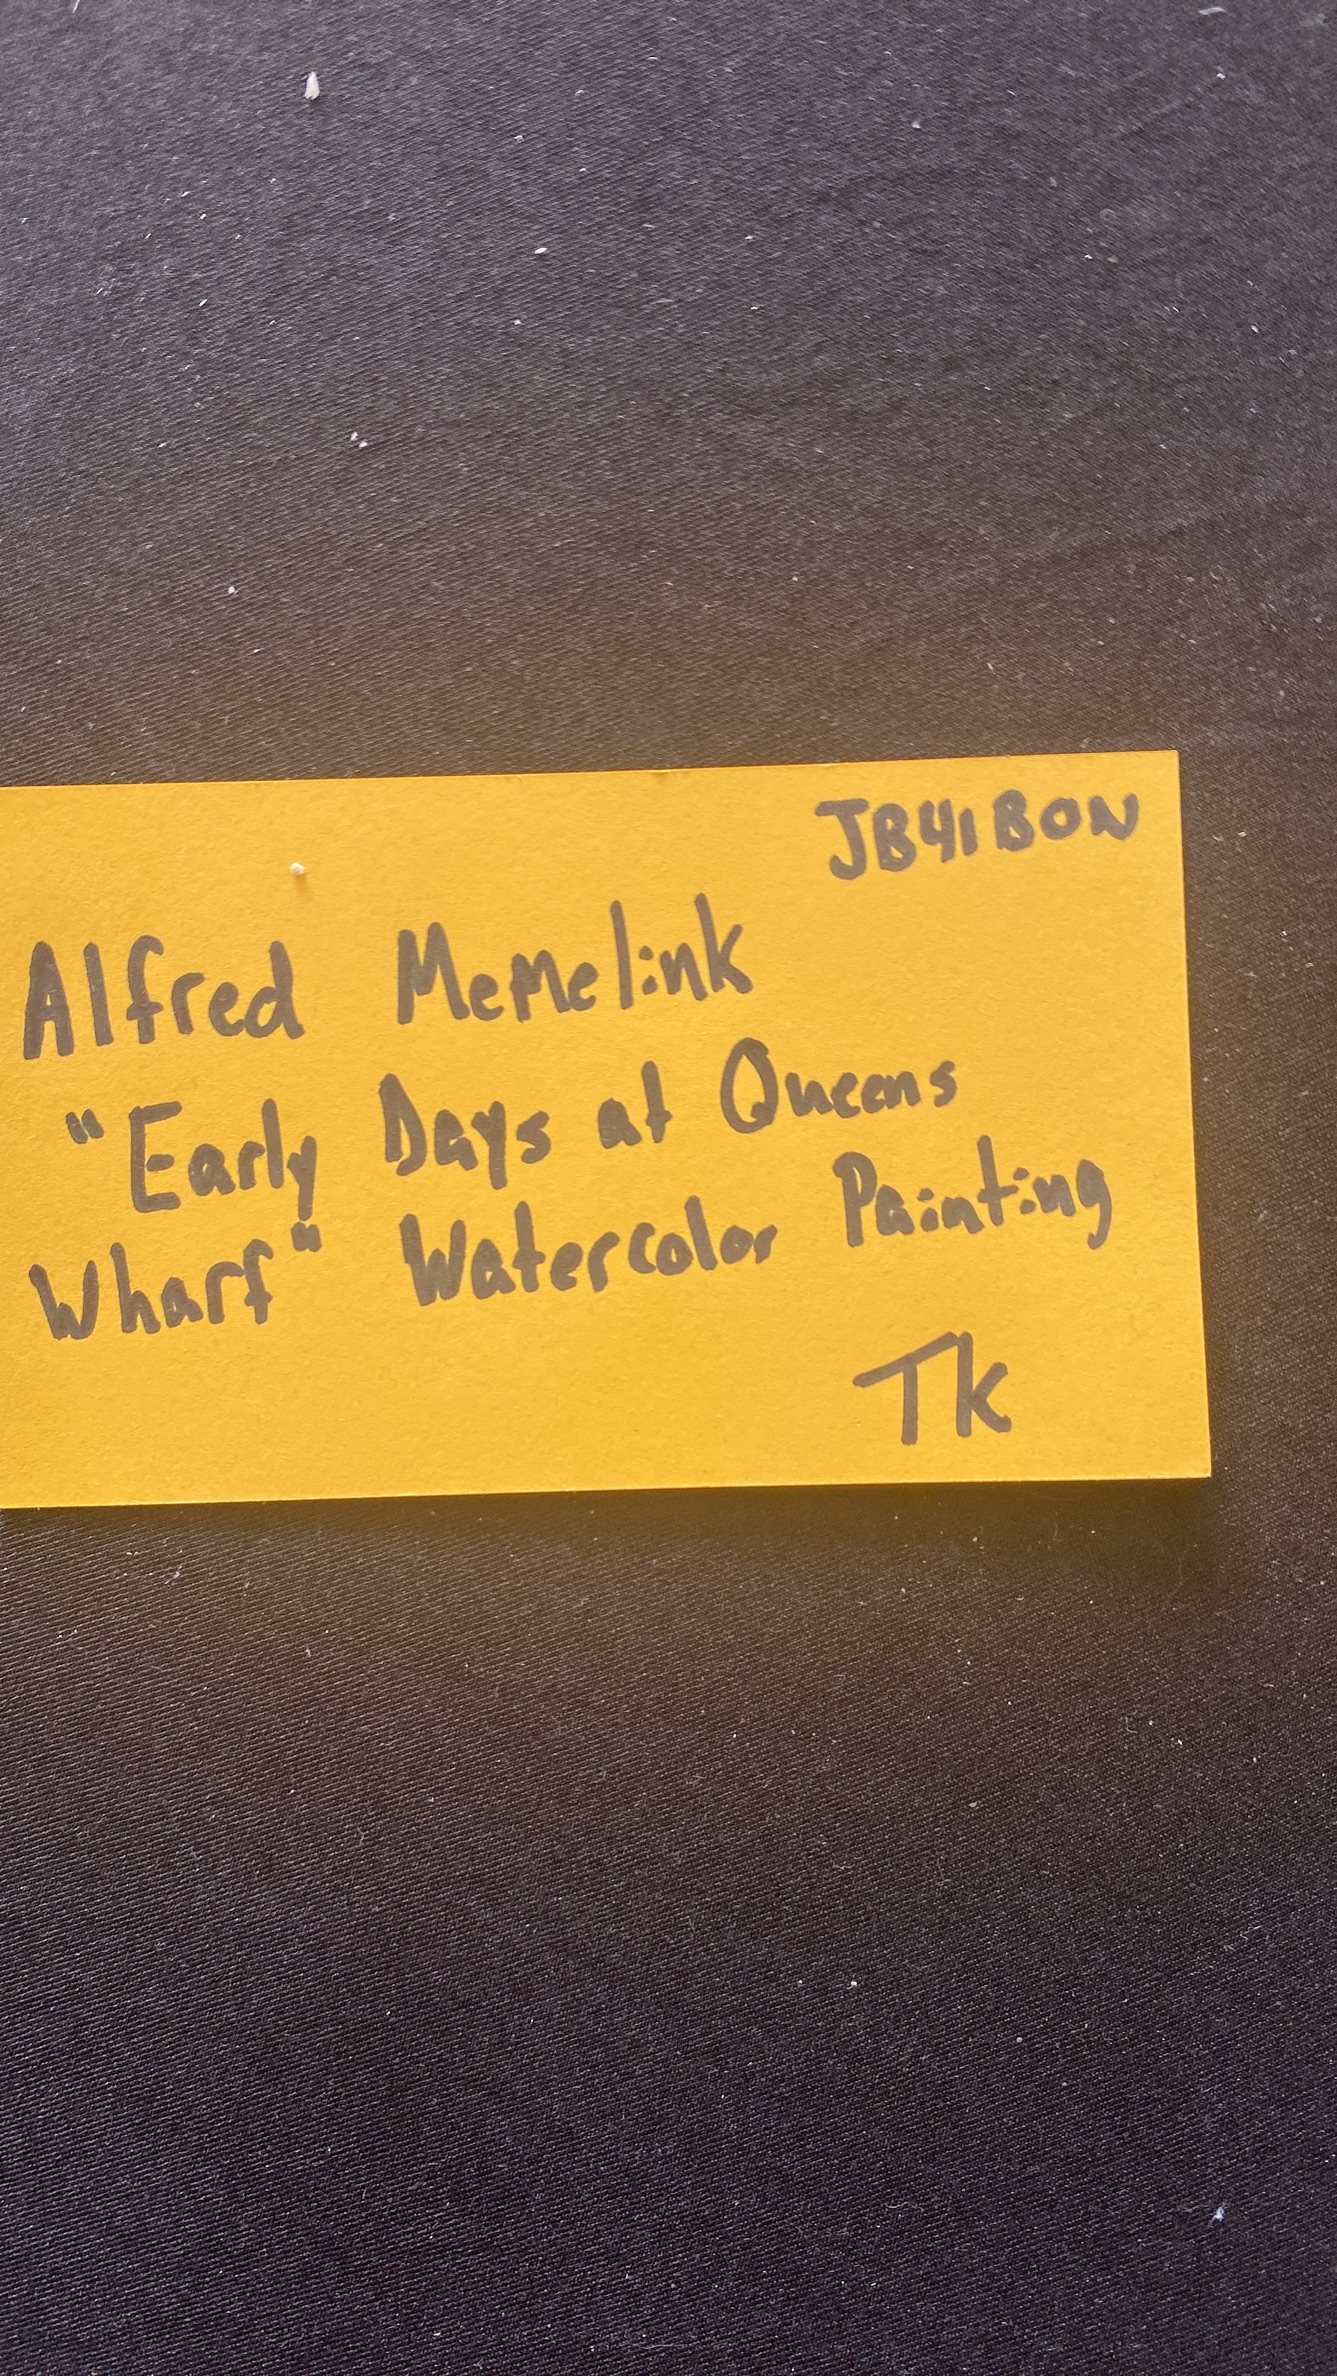 JB41BON
Alfred Memelink
"Early Days at Queens
Wharf" Watercolor Painting
TK